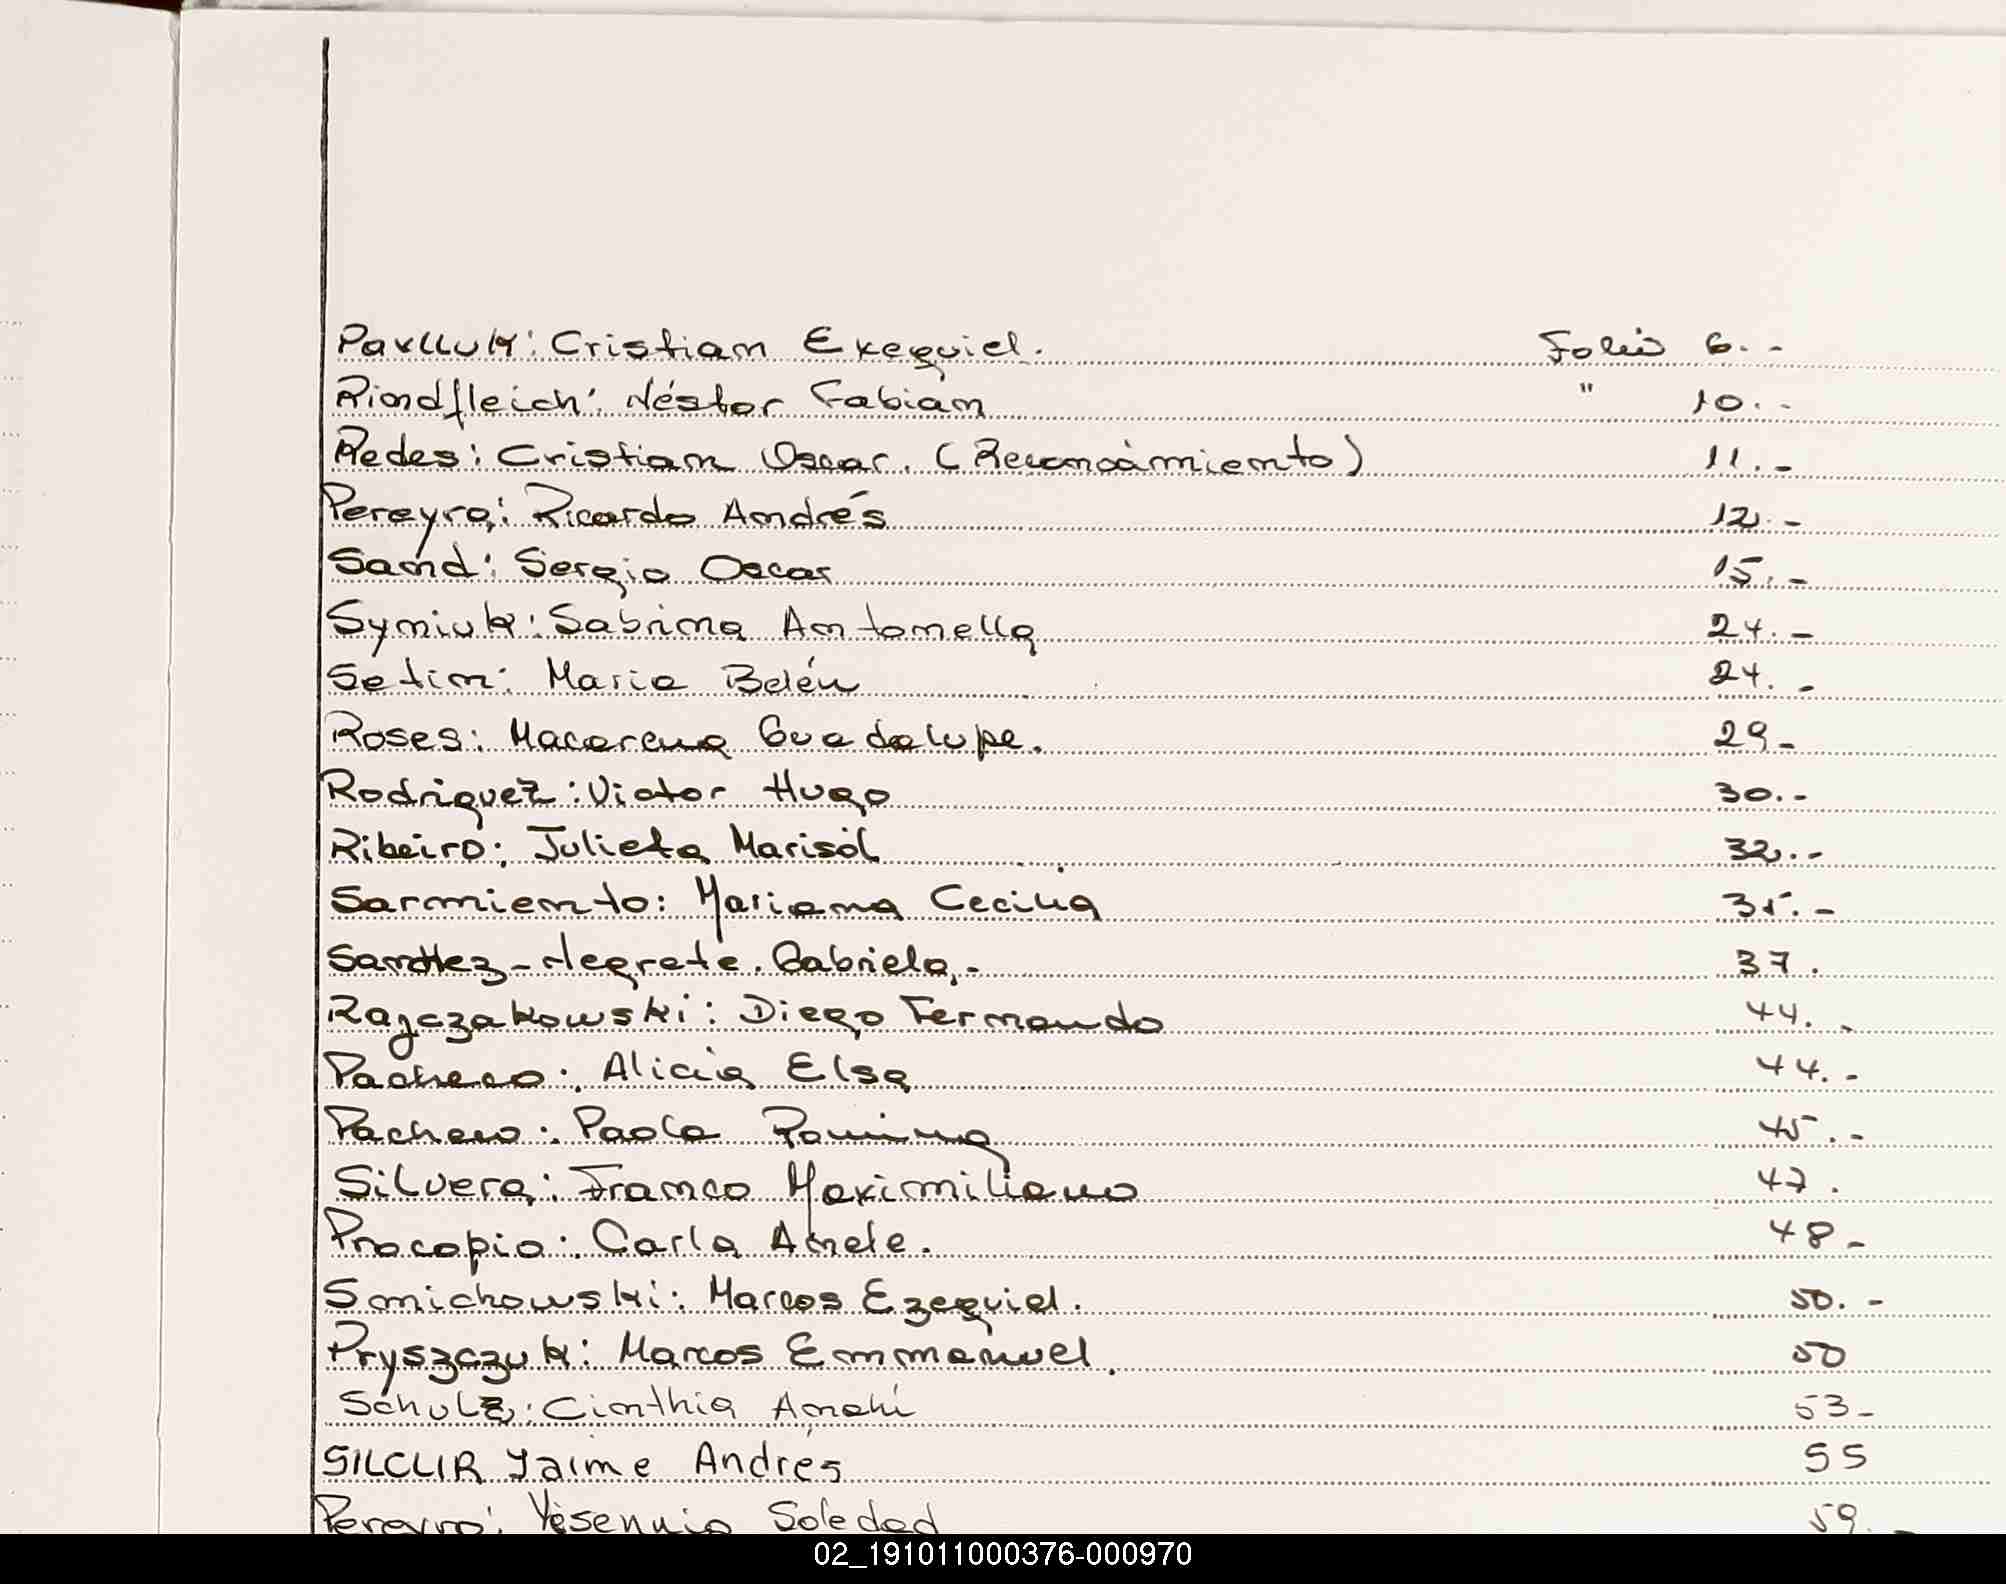 Pavlluk: Cristian Exequiel. Folio 6.-
Rindfleich: Néstor Fabián " 10.-
Redes: Cristian Oscar. (Reconocimiento) 11.-
Pereyra: Ricardo Andrés 12.-
Sand: Sergio Oscar 15.-
Syniuk: Sabrina Antonella 24.-
Setim: Maria Belén 24.-
Roses: Macarena Guadalupe. 29-
Rodriguez: Victor Hugo 30.-
Ribeiro: Julieta Marisól 32.-
Sarmiento: Mariana Cecilia 35.-
Negrete. Gabriela.- 37.
Rajczakowski: Diego Fernando 44.-
Pacheco: Alicia Elsa 44.-
Pacheco: Paola Romina 45.-
Silvera: Franco Maximiliano 47.
Procopio: Carla 48-
Smichowski: Marcos Ezequiel. 50.-
Pryszczuk: Marcos Emmanuel. 50
Schulz: Cinthia Anahí 53-
SILCLIR Jaime Andrés 55
Pereyra: Yesennia Soledad 59.-
02_191011000376-000970